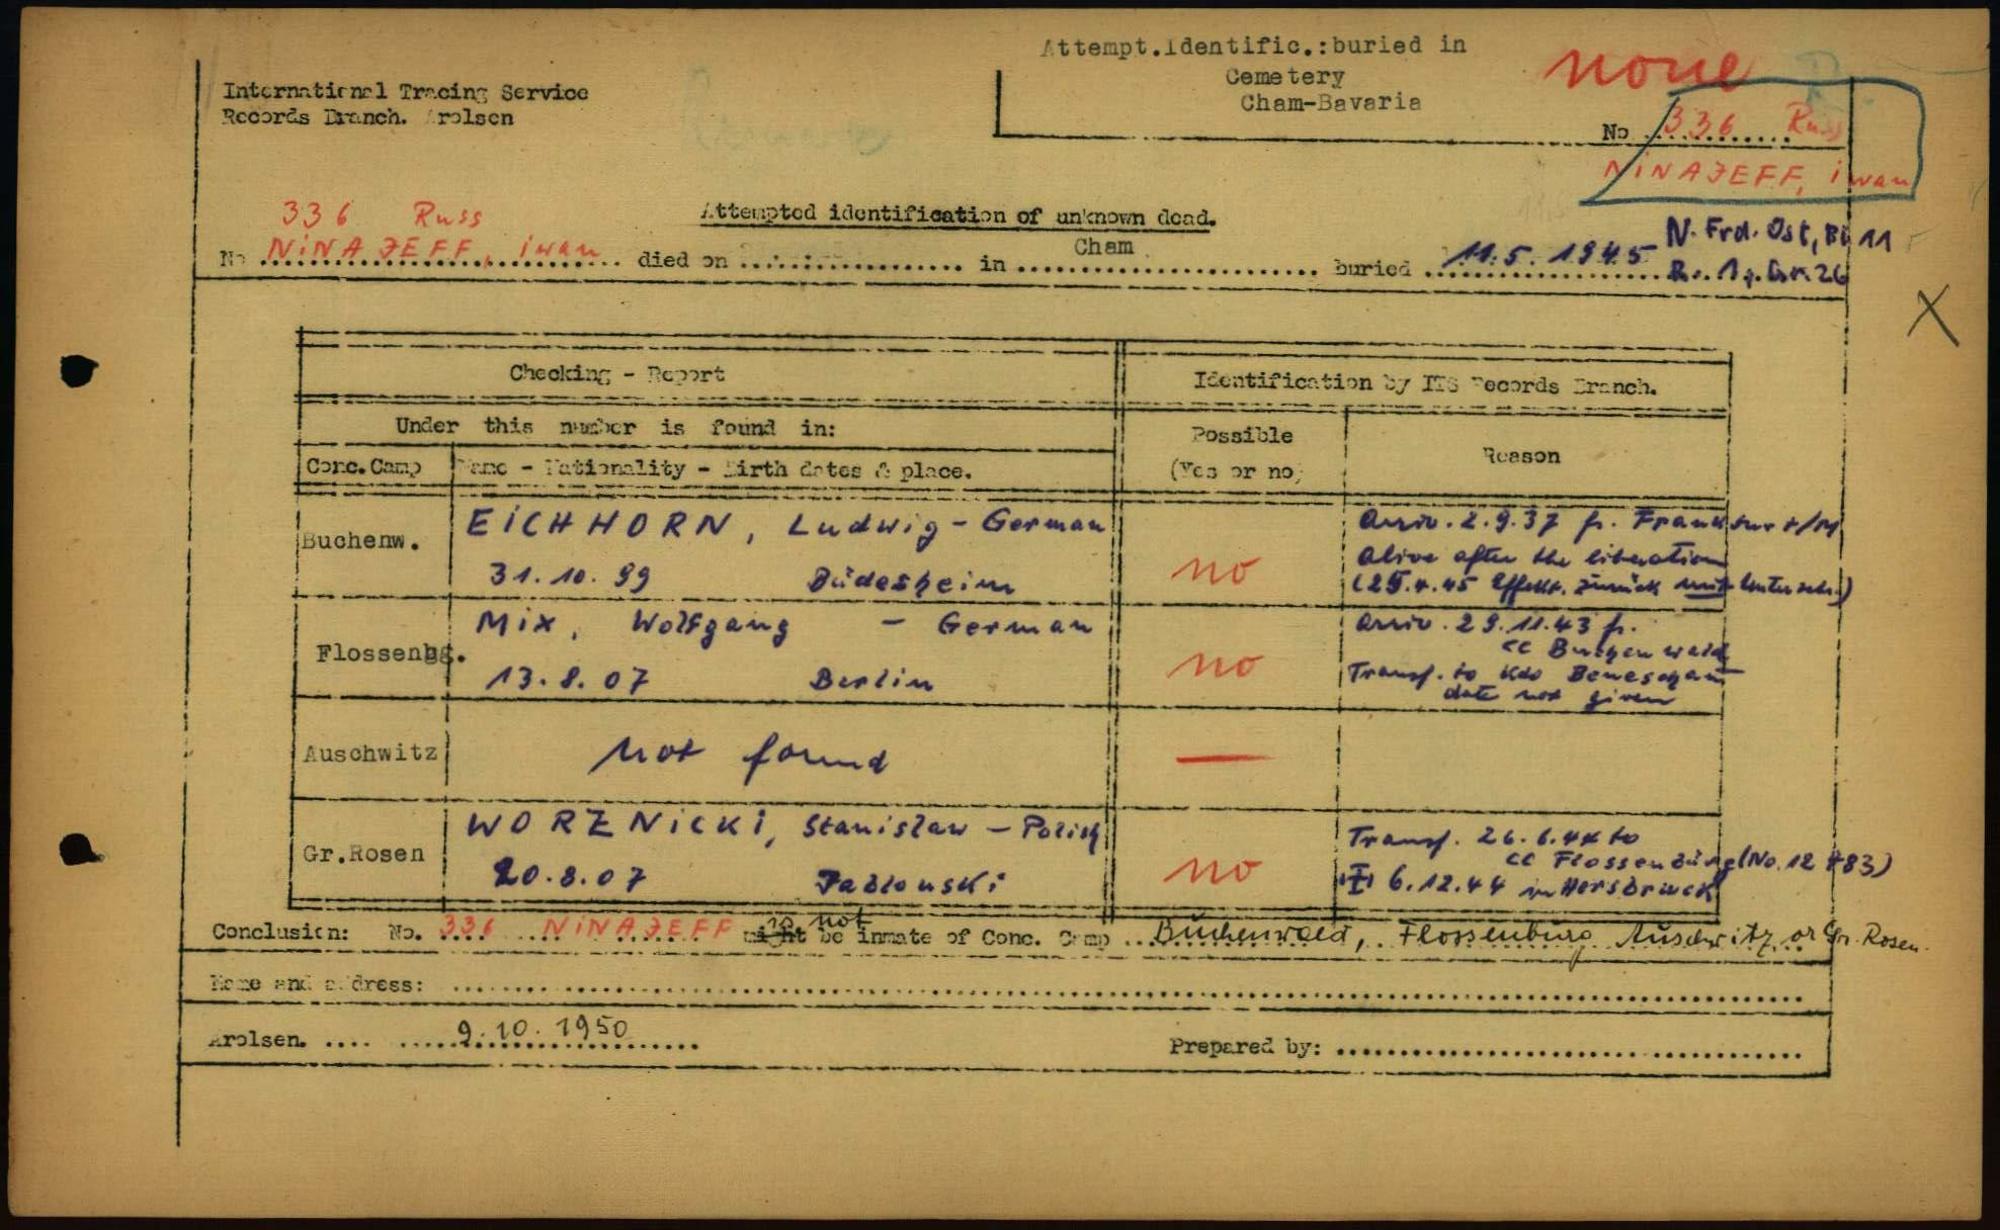 Attempt.Identific.:buried in
Cemetery
Cham-Bavaria
none
International Tracing Service
Records Branch. Arolsen
No 336 Russ
NINAJEFF, iwan
Attempted identification of unknown dead.
336 Russ
No NINAJEFF, iwan died on .................. in Cham buried 11.5.1945 N. Frd. Ost, Bl 11
R. 1, Gr. 26
X
Checking - Report
Identification by ITS Records Branch.
Under this number is found in:
Possible
(Yes or no)
Reason
Conc.Camp
Name - Nationality - Birth dates & place.
Buchenw.
EICHHORN, Ludwig - German
31.10.99 Büdesheim
no
arriv. 2.9.37 fr. Frankfurt/M
alive after the liberation
(25.4.45 Effekt. zurück mit Unterschr.)
Flossenbg.
Mix, Wolfgang - German
13.8.07 Berlin
no
arriv. 29.11.43 fr.
CC Buchenwald
Transf. to Kdo Beneschau
date not given
Auschwitz
not found
—
Gr.Rosen
WORZNICKI, Stanislaw - Polish
20.8.07 Jablonski
no
Transf. 26.6.44 to
CC Flossenbürg (No. 12483)
6.12.44 in Hersbruck
Conclusion: No. 336 NINAJEFF might is not be inmate of Conc. Camp Buchenwald, Flossenbürg Auschwitz or Gr. Rosen.
Name and address: ..................
Arolsen. .... 9.10.1950
Prepared by: ..................